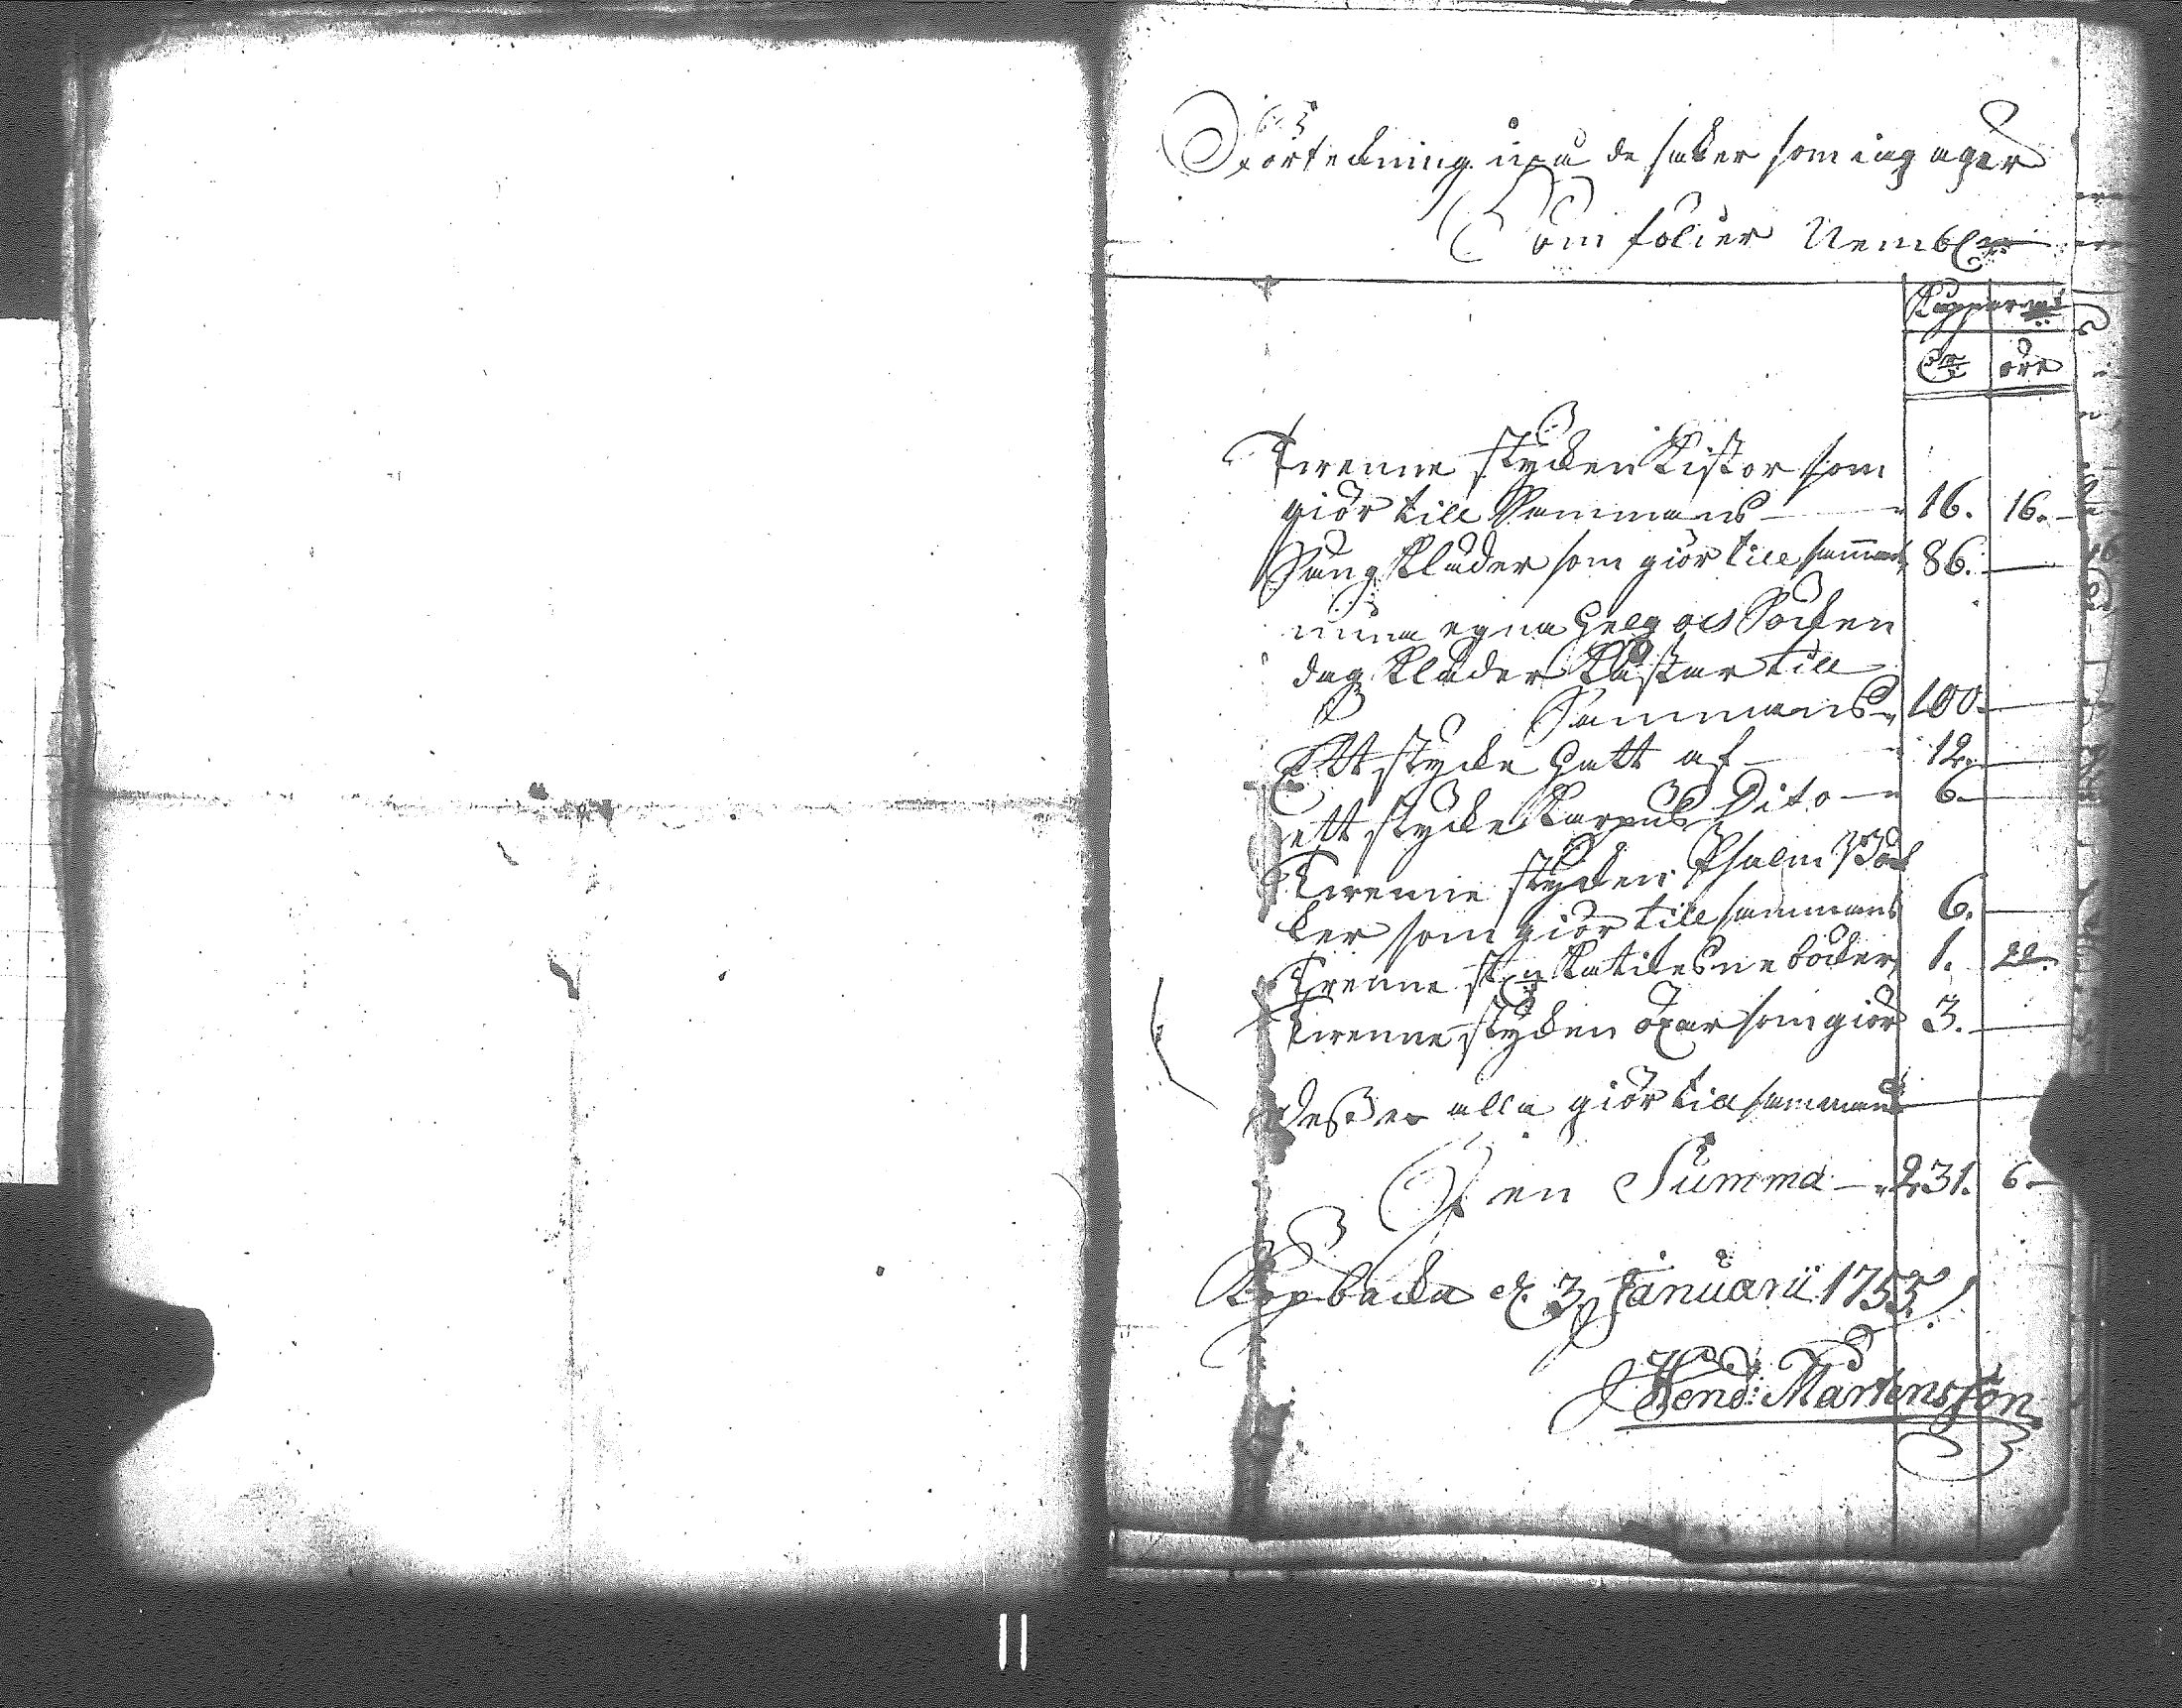 Förteckning upå de saker som iag äger
Som fölier Nembl:
Kopparmt
Dr öre
Twenne stycken Kistor som
giör till Sammans 16. 16.
Säng Kläder som giör till samans 86.
mina egna Helg och Söcken
dag Kläder Kåstar till
Sammans 100.
Ett stycke Hatt af 12.
ett stycke Karpus Dito 6
Twenne stycken Psalm Böc
ker som giör till sammans 6.
Trenne st Katikesne böcker 1. 22.
Twenne stycken öxar som giör 3.
desse alla giör till sammans
En Summa 231. 6
d. 3 Januarii 1755
Hend: Mårtensson
11